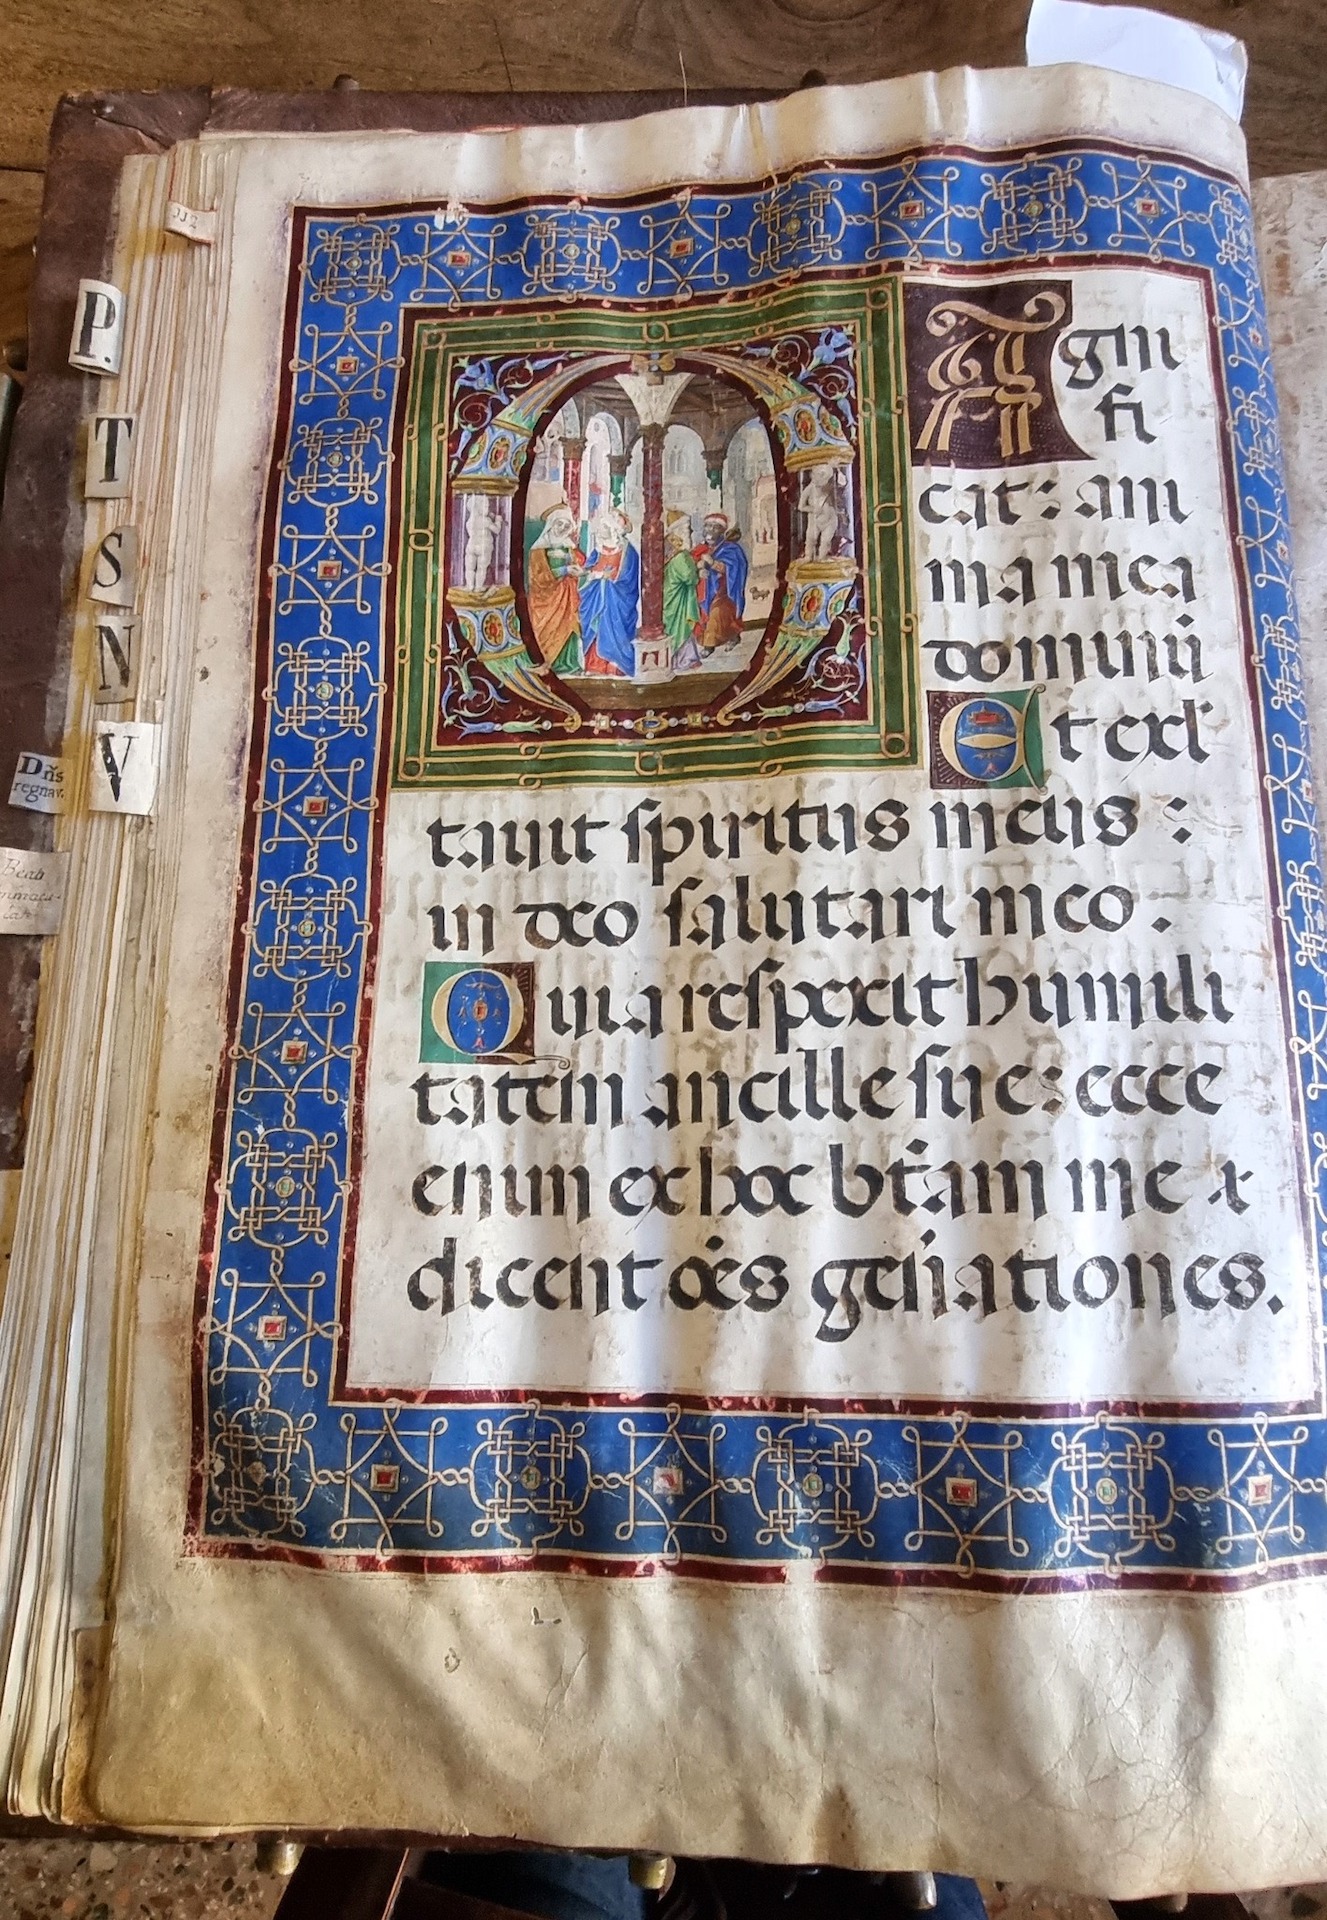 P.
T
S
N
V
Dñs
regnav.
Beati
immacu-
lati
MAgni
fi
cat: ani
ma mea
dominū
Et exl'
tauit spiritus meus :
in deo salutari meo .
Quia respexit humili
tatem ancille sue: ecce
enim ex hoc btām me x
dicent oēs gen'ationes.